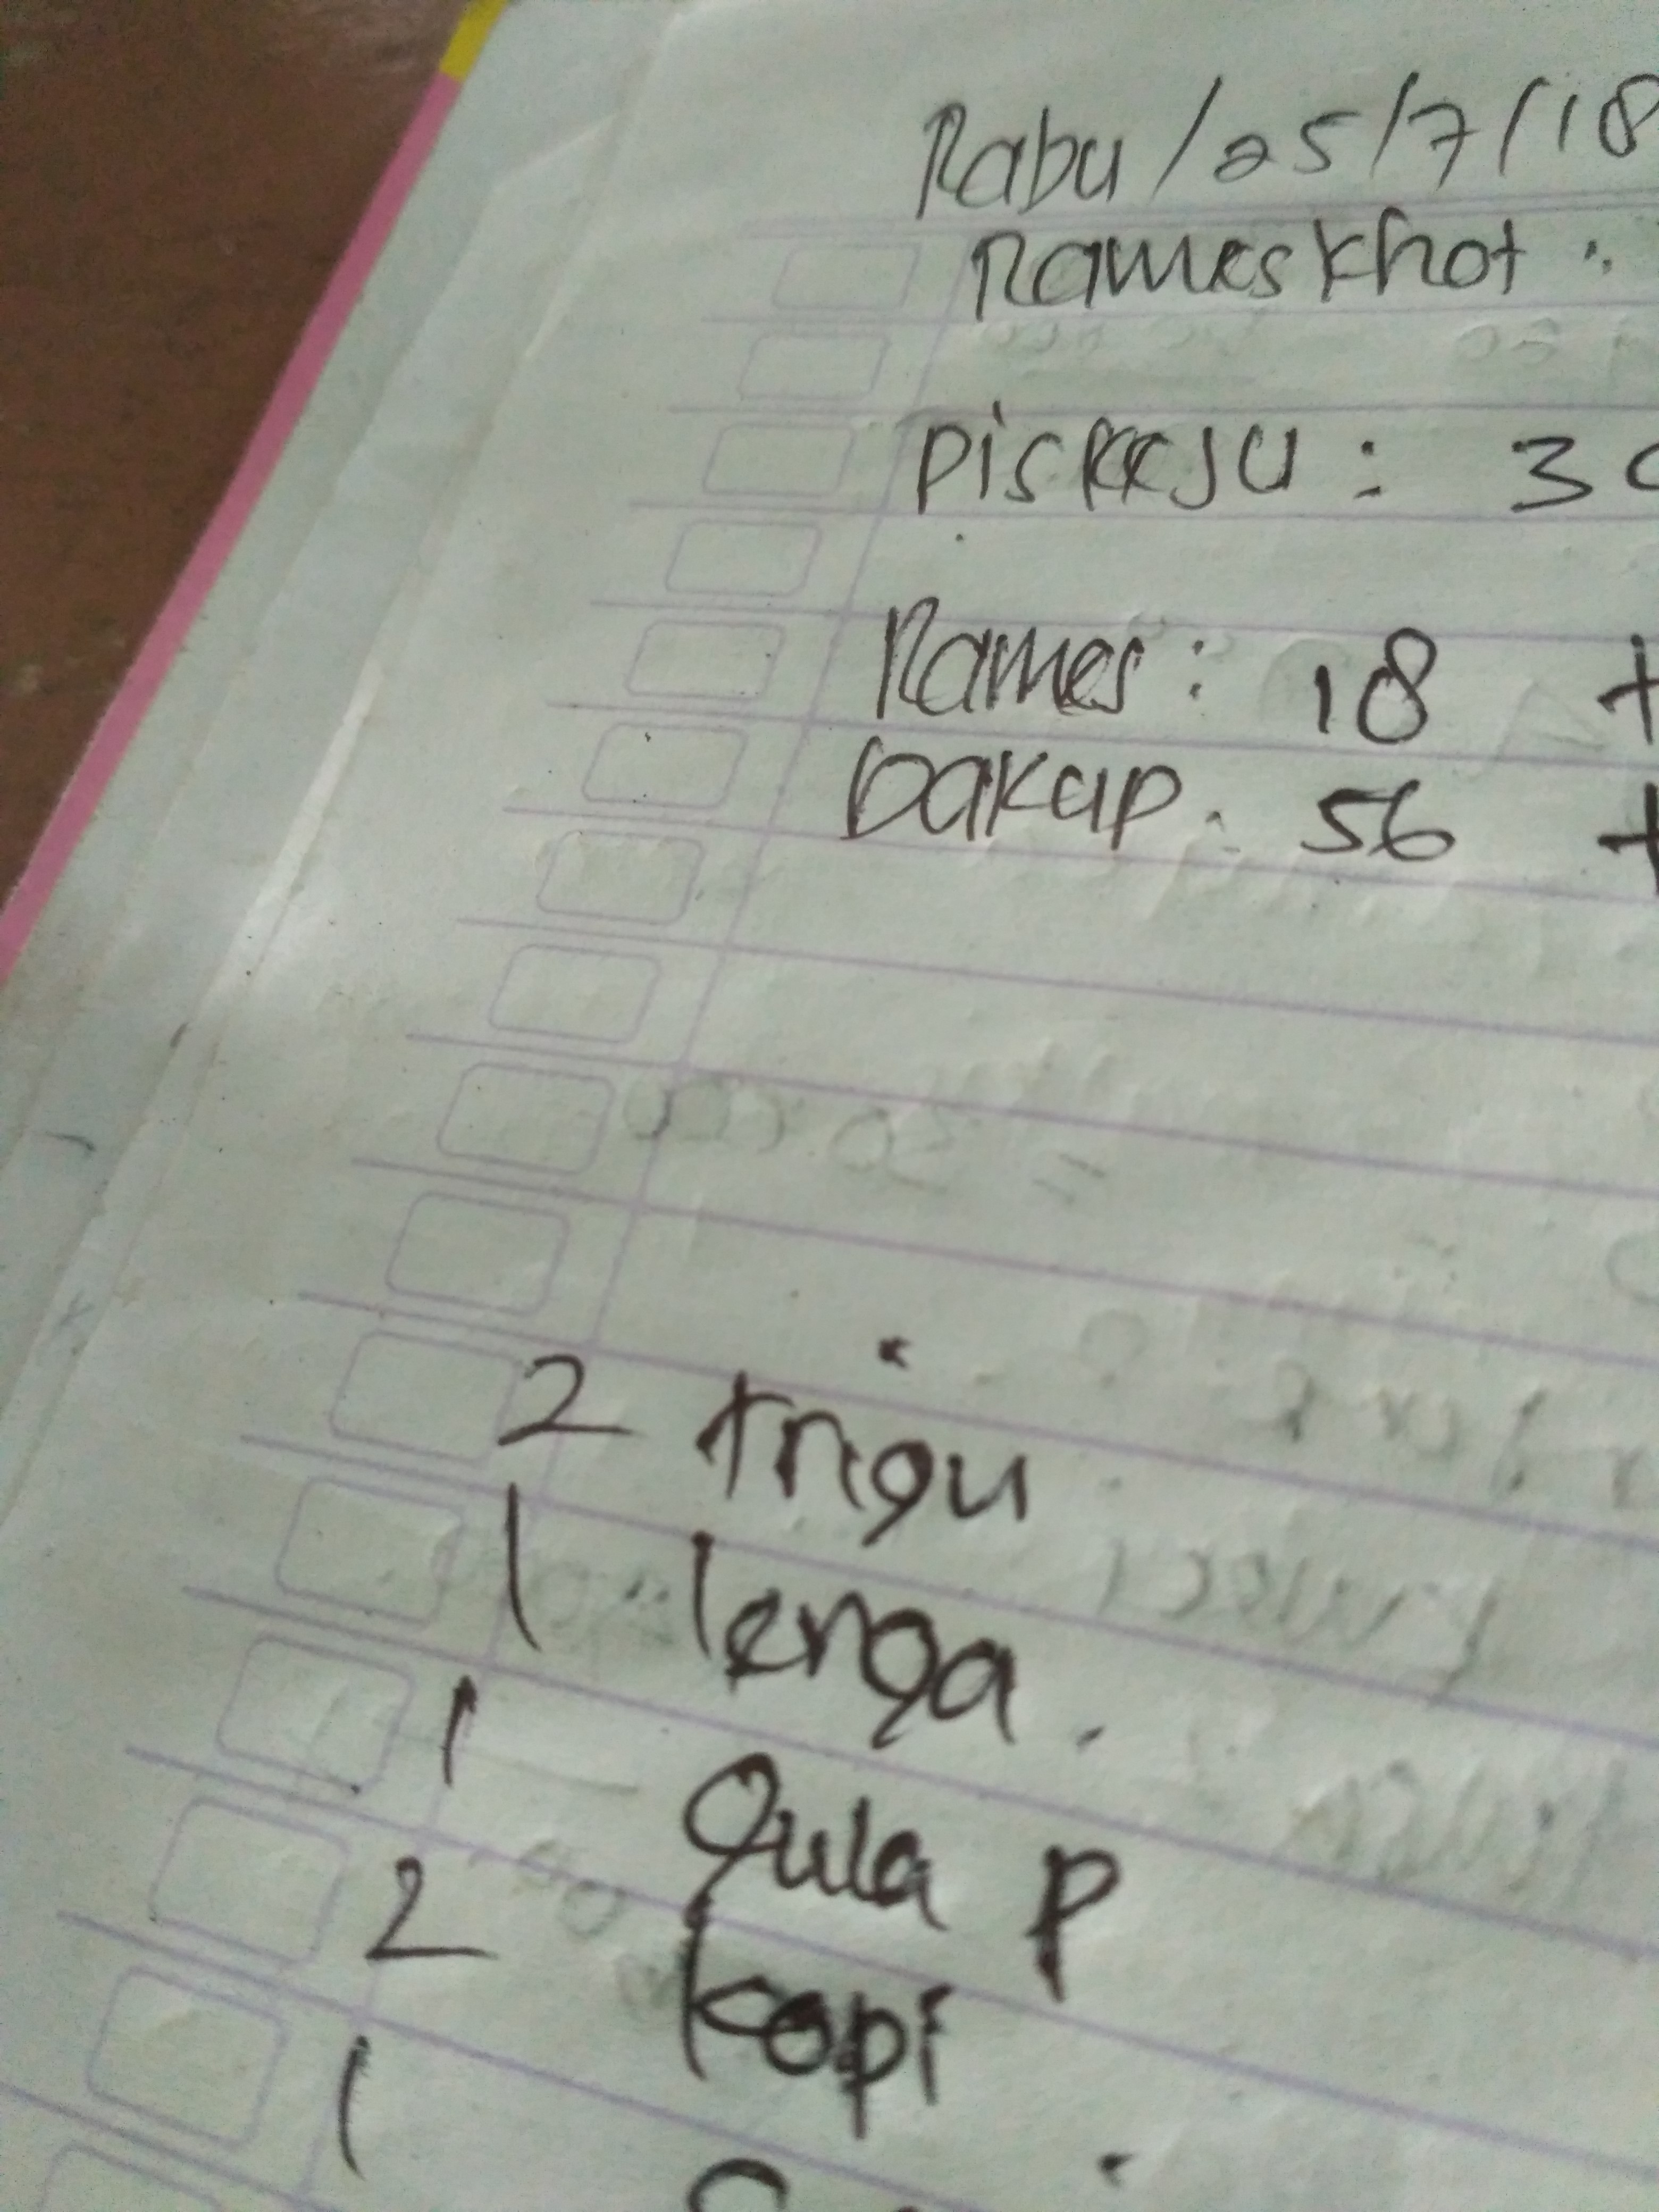 Rabu / 25/7/18
Rames Khot :
Piskeju : 30
Rames : 18 +
Dakup . 56 +
2 trigu
1 lenga .
1 Gula P
2 kopi
1